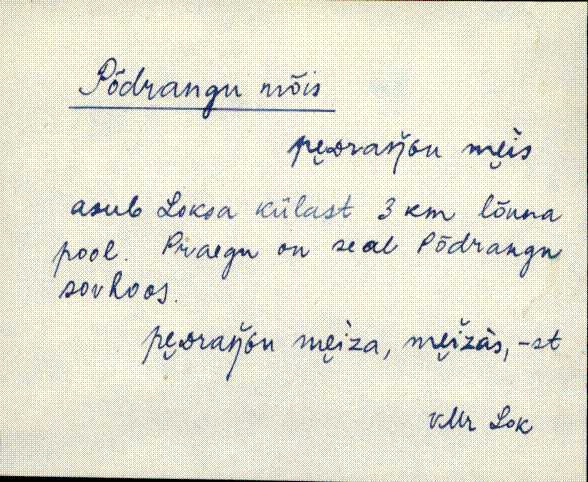 Põdrangu mõis
pe̮draŋ̀ɢu me̮i̯s
asub Loksa külast 3 km lõuna
pool. Praegu on seal Põdrangu
sovhoos.
pe̮draŋ̀ɢu me̮i̯za, me̮i̯zàs, -st
VMr Lok